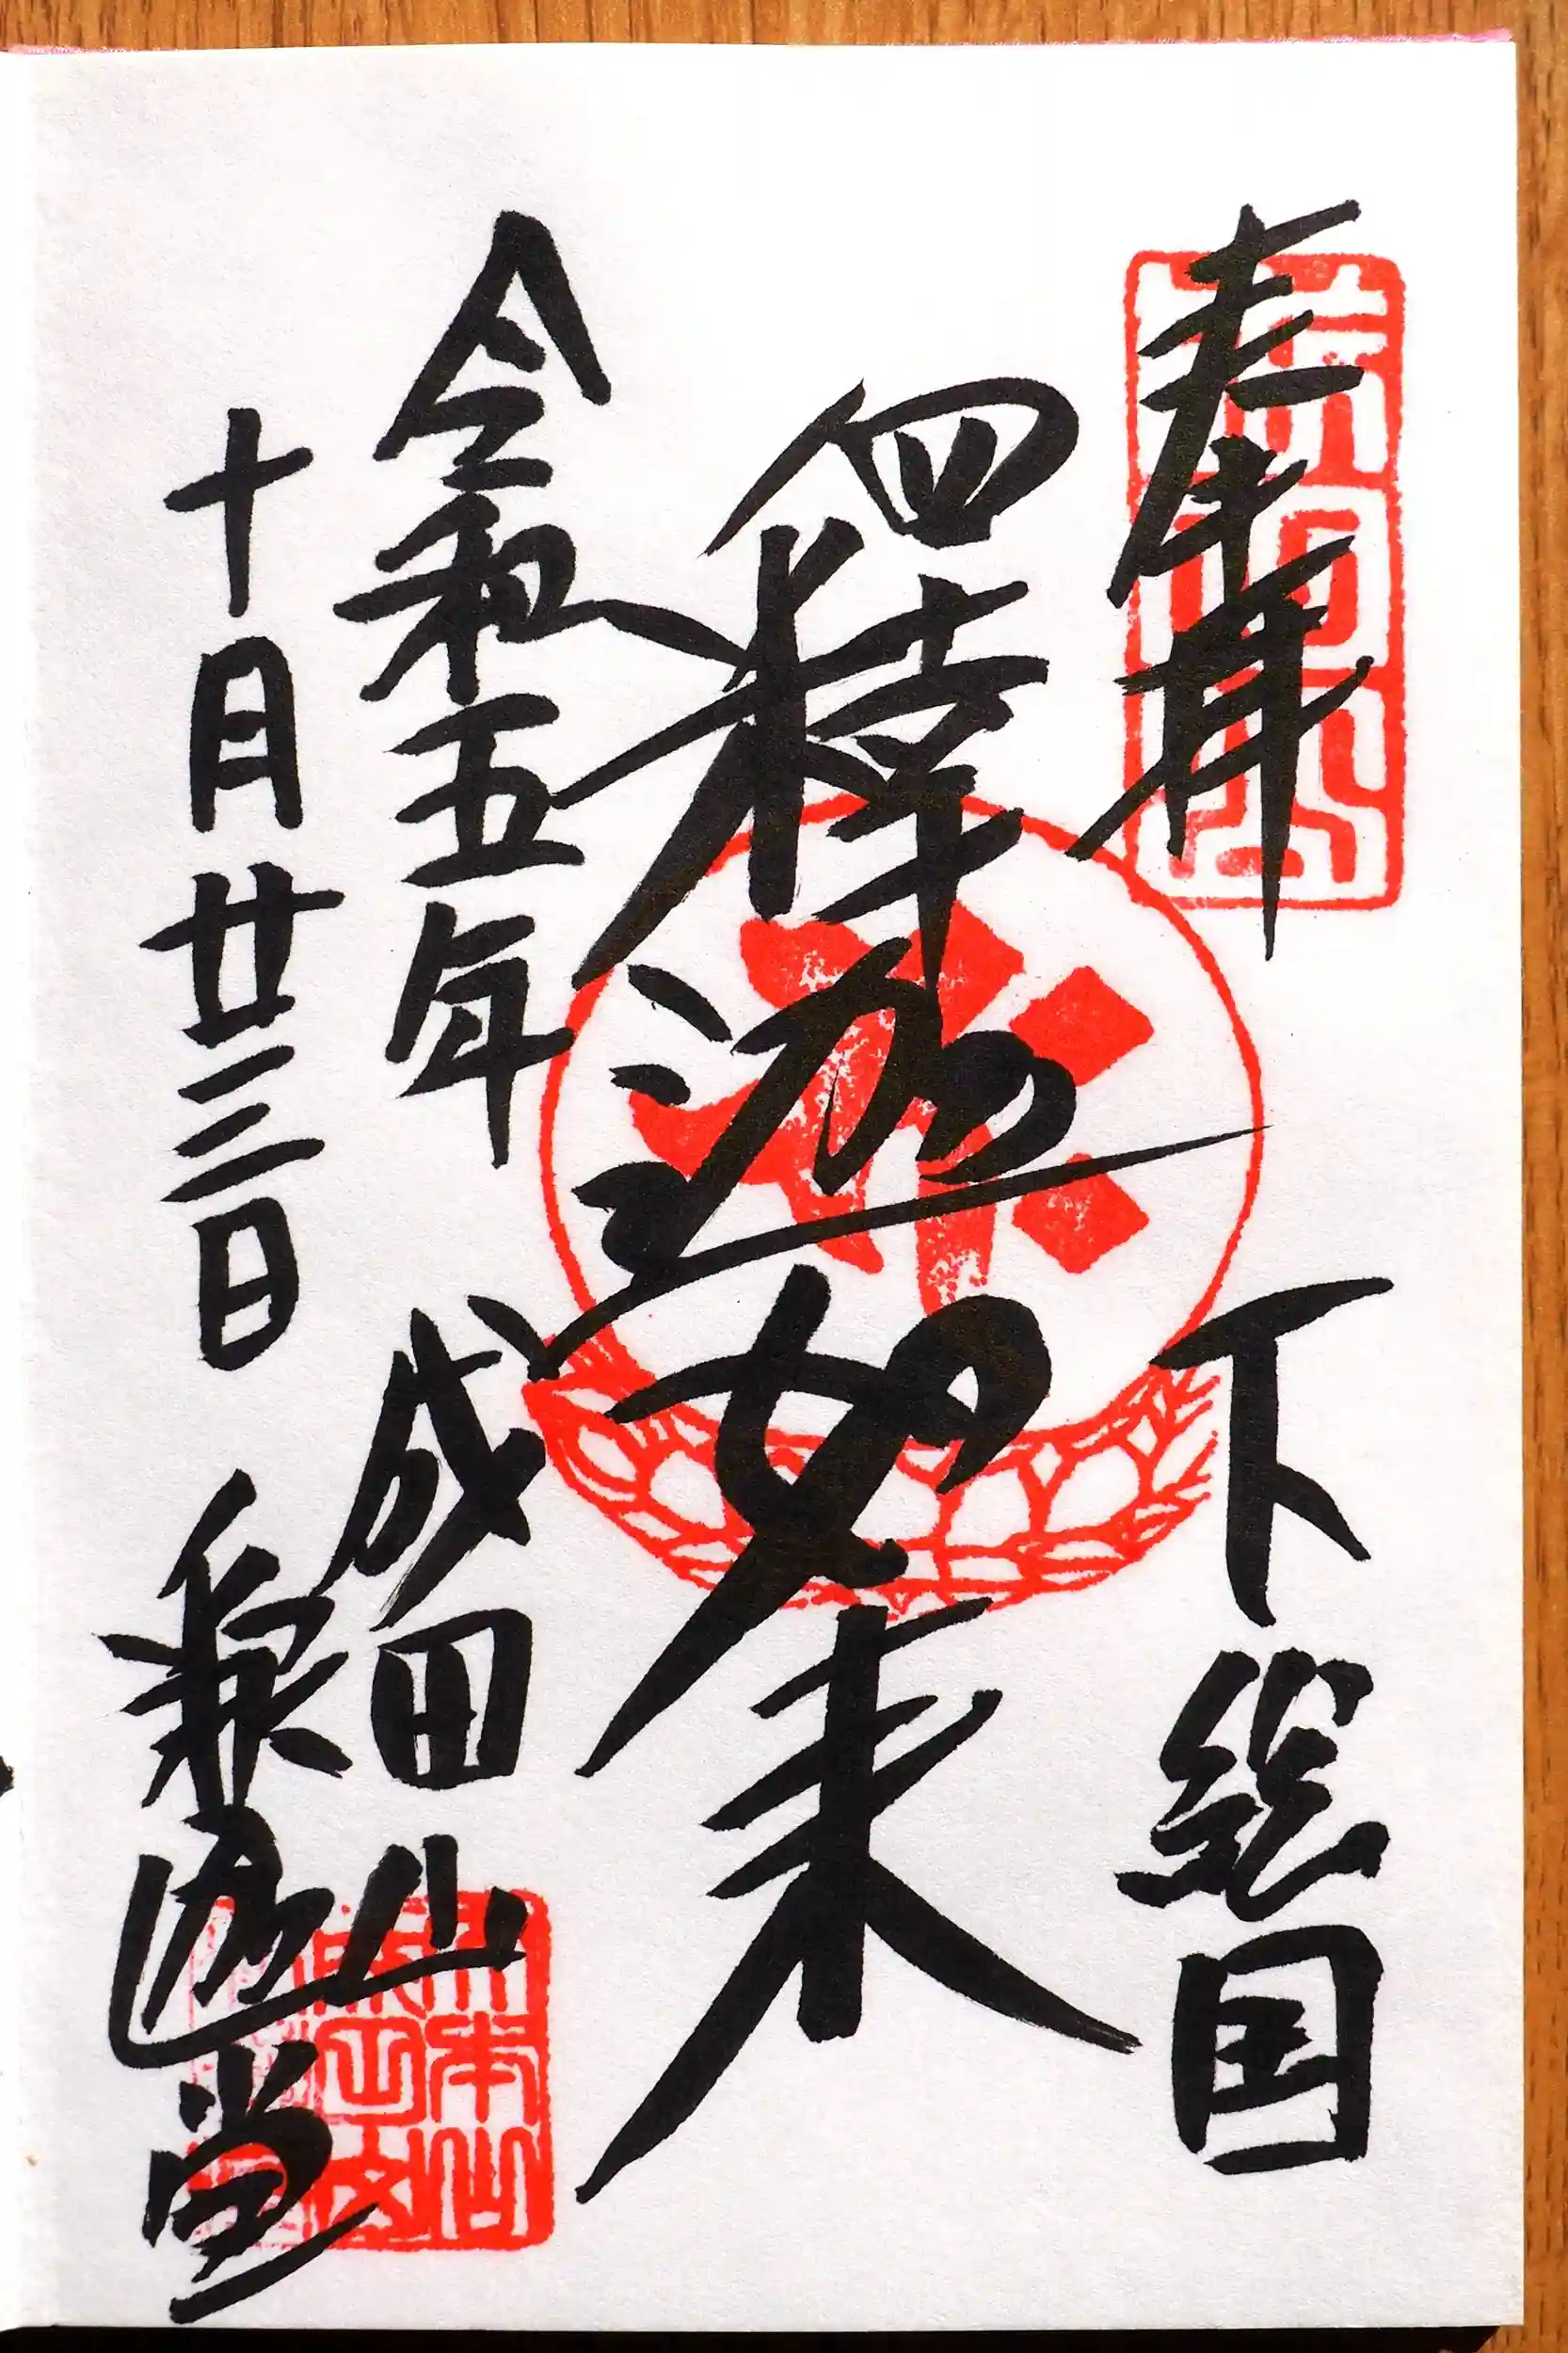 奉拝
下総国
釋迦如来
令和五年
十月廿三日
成田山
釋迦堂